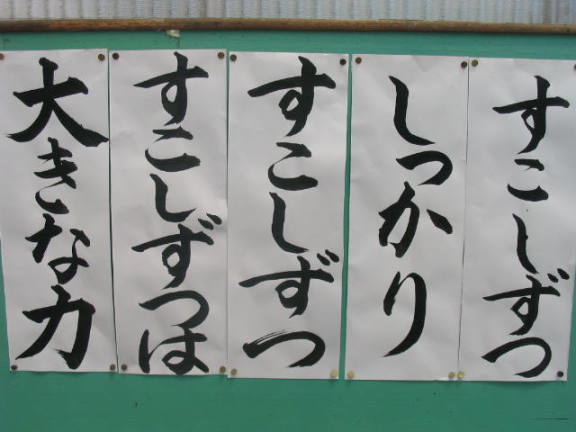 すこしずつ
しっかり
すこしずつ
すこしずつは
大きな力